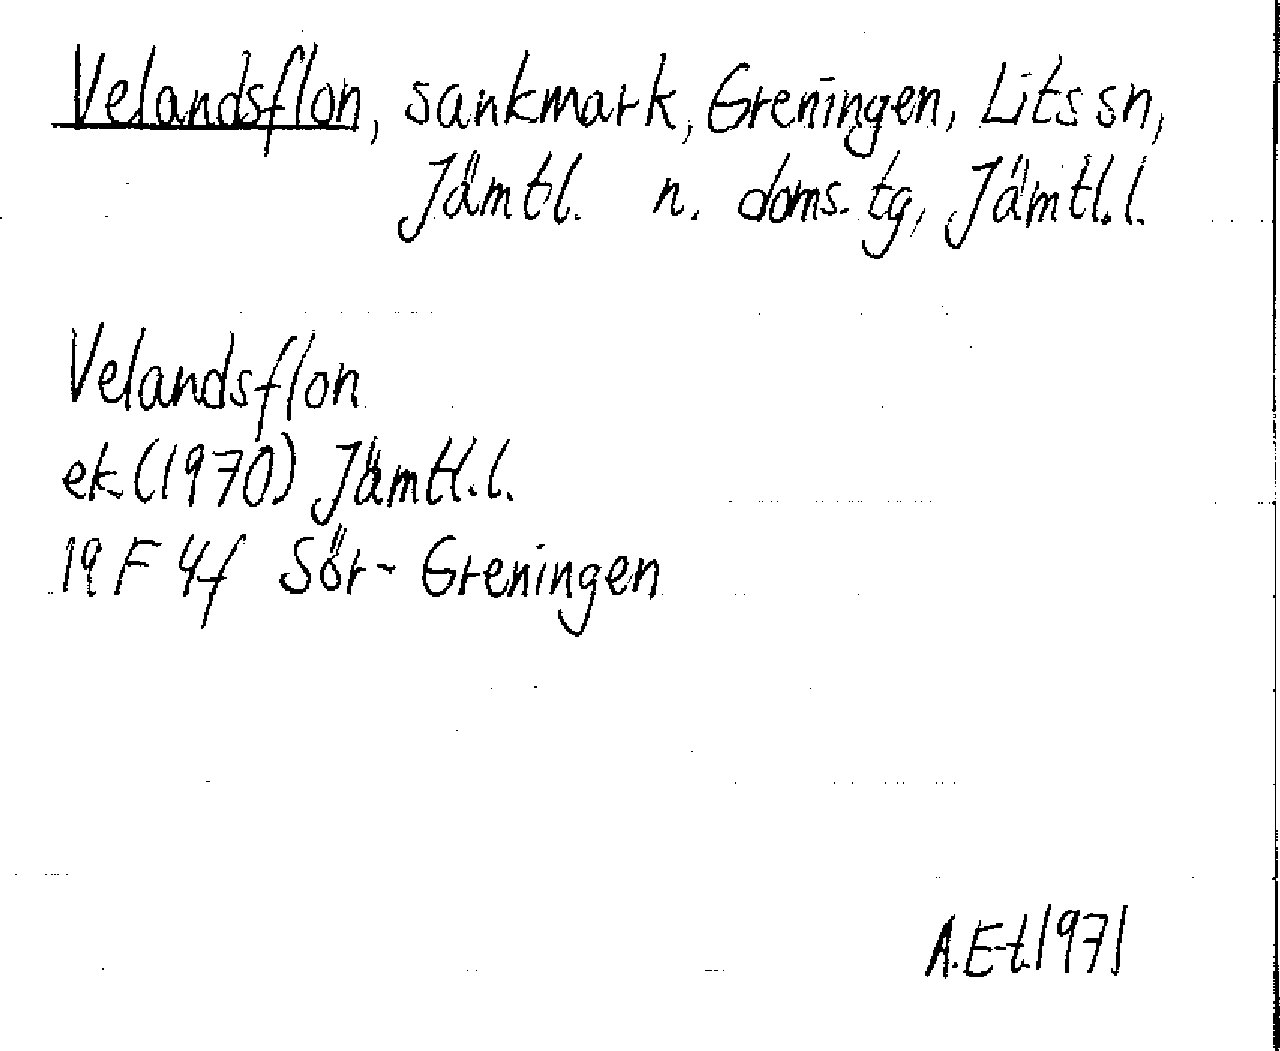 Velandsflon, sankmark, Greningen, Lits sn,
Jämtl. n. doms. tg, Jämtl. l.
Velandsflon
ek (1970) Jämtl. l.
19 F 4f Sör-Greningen
A.E-t. 1971